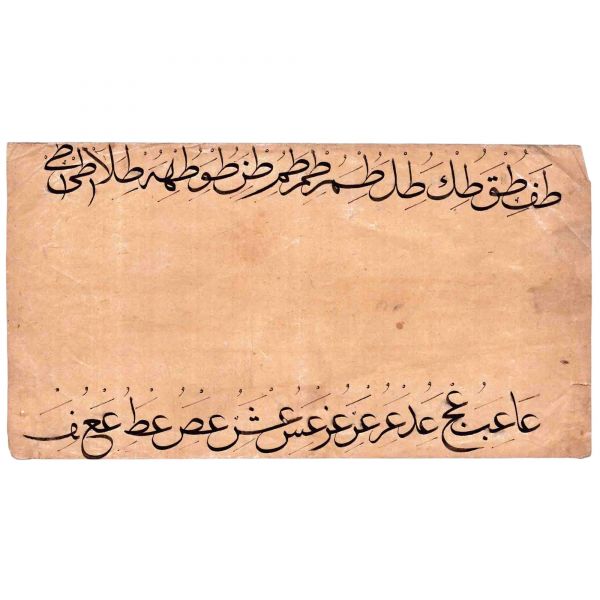 طف طق طك طل طم طم طم طن طو طه طلا طى طے
عا عب عج عد عر عر عر عس عس عص عط عع عف